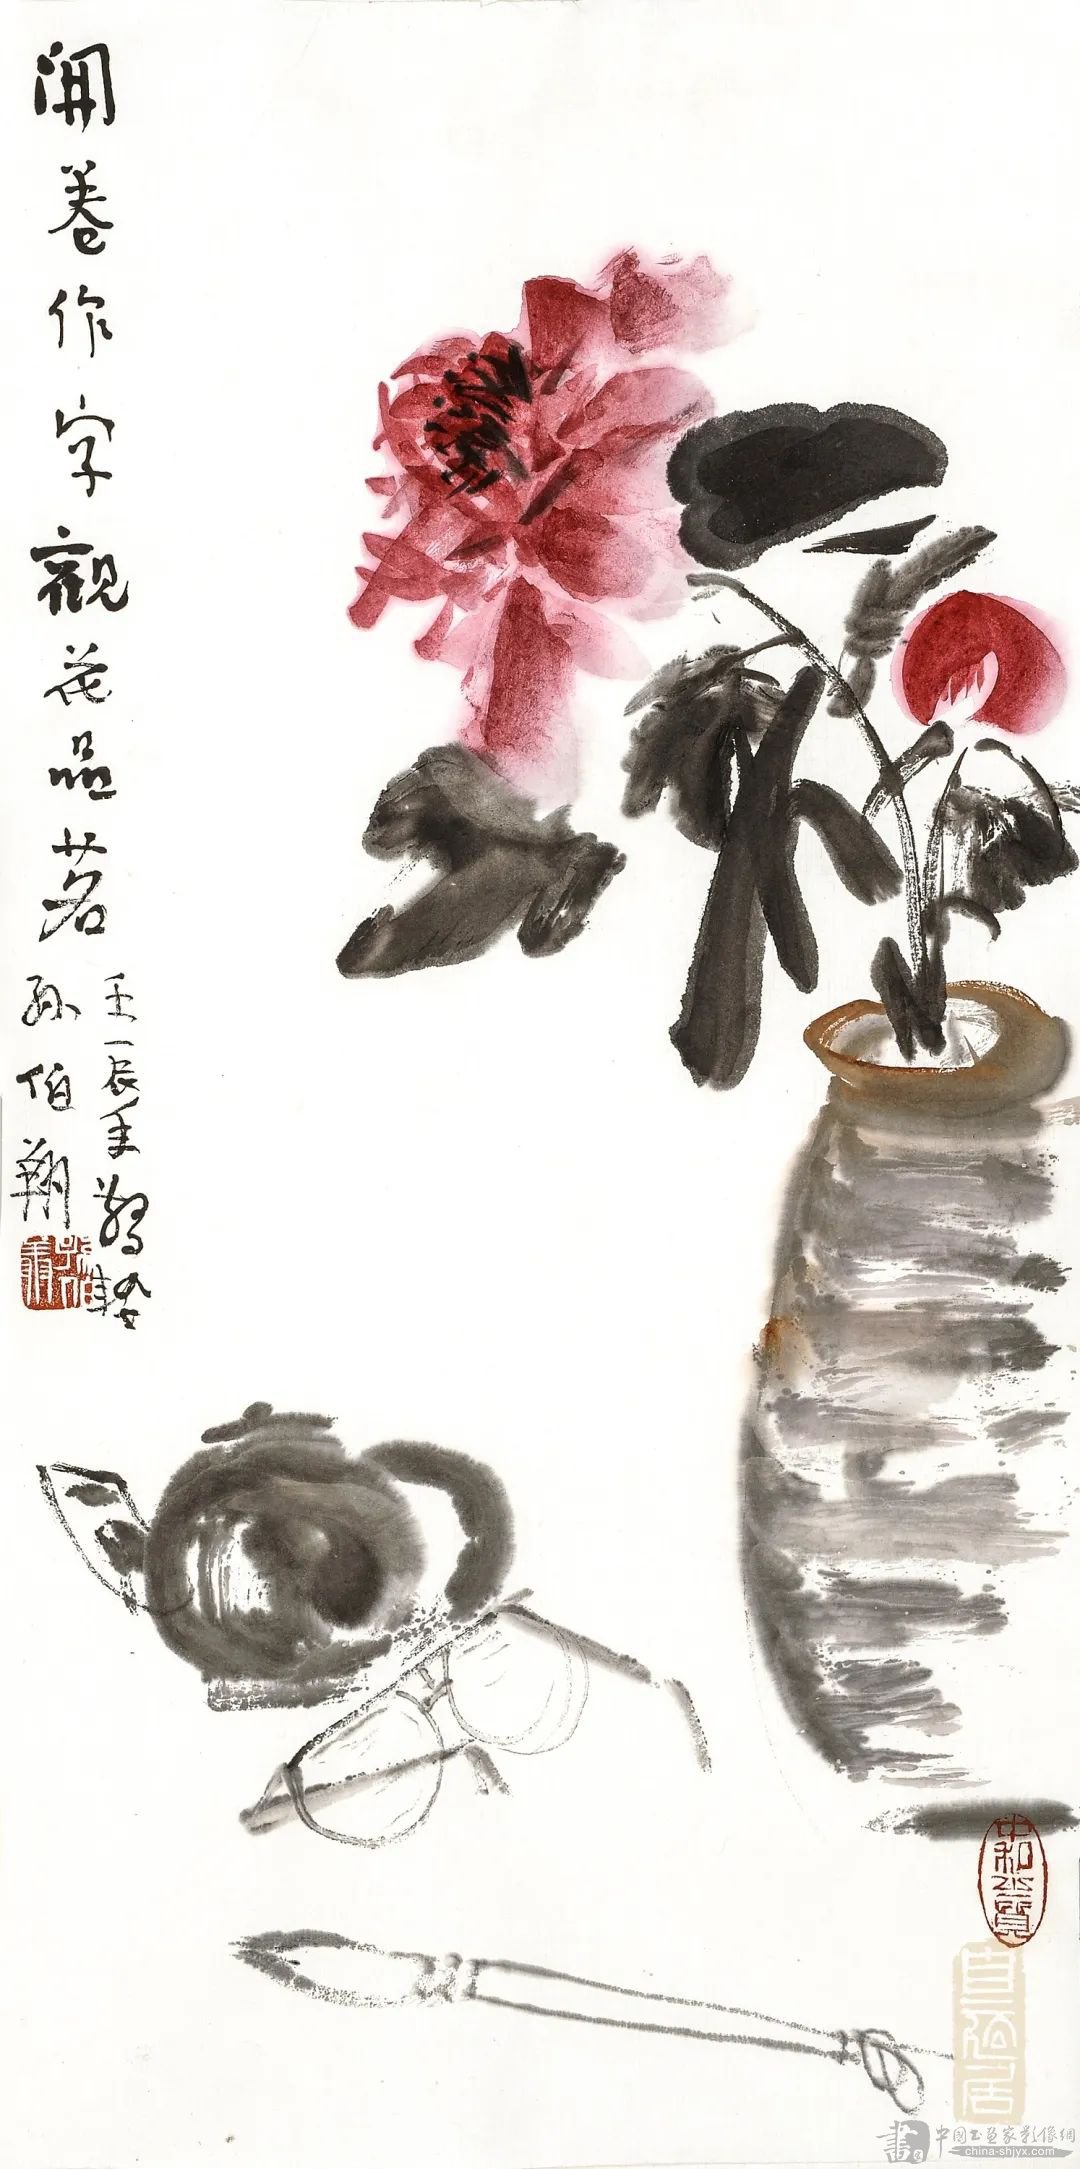 開卷作字觀花品茗
壬辰年驚蟄
孫伯翔
中和之質
中國書畫家影像網
china-shjyx.com